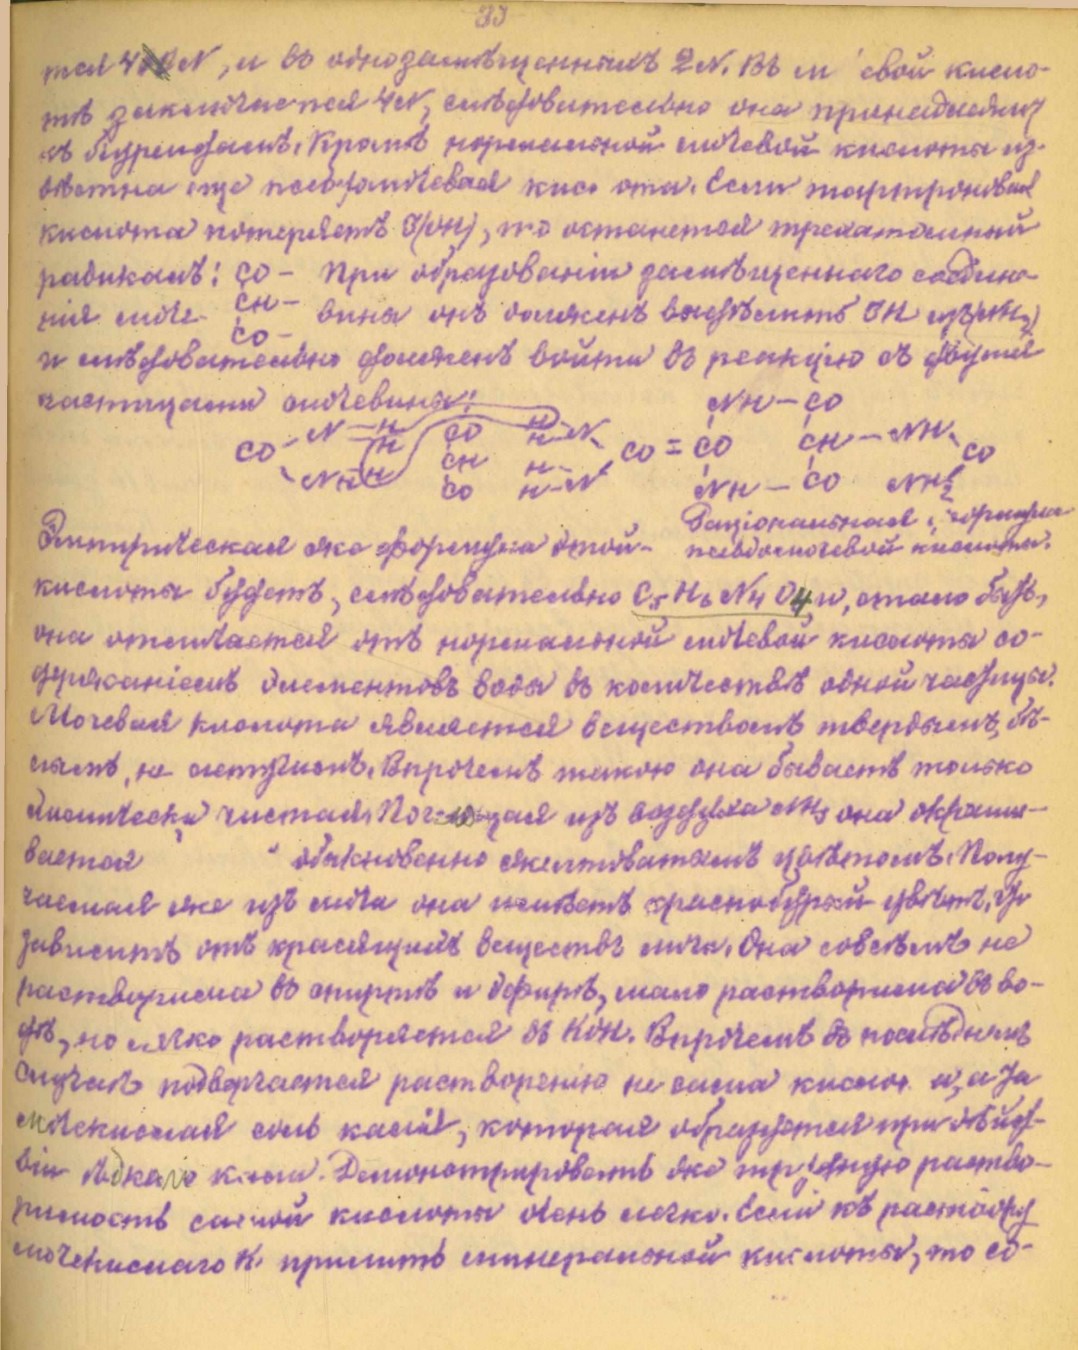 33
тся 4 N, и въ однозамѣщенныхъ 2N. Въ м свой кисло-
тѣ заключается 4N, слѣдовательно она принадлежит
къ біуреидамъ. Кромѣ нормальной мочевой кислоты из-
вѣстна еще псевдомочевая кис ота. Если тартроновая
кислота потеряетъ 2(OH), то останется трехатомный
радикалъ: CO – При образованіи замѣщеннаго соедине-
CH –
нія моче- вины онъ долженъ выдѣлить 3H изъ (NH2)
CO –
и слѣдовательно долженъ войти въ реакцію съ двумя
частицами мочевины:
NH – CO
CO N H H CO H H N CO = CO CH – NH CO
NH H CH H
CO H N NH – CO NH2
Раціональная формула
Эмпирическая же формула этой псевдомочевой кислоты.
кислоты будетъ, слѣдовательно C5 H6 N4 O4 и, стало быть,
она отличается отъ нормальной мочевой кислоты со-
держаніемъ элементовъ воды въ количествѣ одной частицы.
Мочевая кислота является веществомъ твердымъ, бѣ-
лымъ, не летучимъ. Впрочемъ такою она бываетъ только
химически чистая. Погло щая изъ воздуха NH3 она окраши-
вается обыкновенно желтоватымъ цвѣтомъ. Полу-
чаемая же изъ мочи она имѣетъ краснобурый цвѣтъ, что
зависитъ отъ красящихъ веществъ мочи. Она совсѣмъ не
растворима въ спиртѣ и эфирѣ, мало растворима въ во-
дѣ, но легко растворяется въ KOH. Впрочемъ въ послѣднемъ
случаѣ подвергается растворенію не сама кислот а, а
мочекислая соль калія, которая образуется при дѣйст-
віи ѣдкаго кали. Демонстрировать же трудную раство-
римость самой кислоты очень легко. Если къ раствору
мочекислаго K. прилить минеральной кислоты, то сѣ-